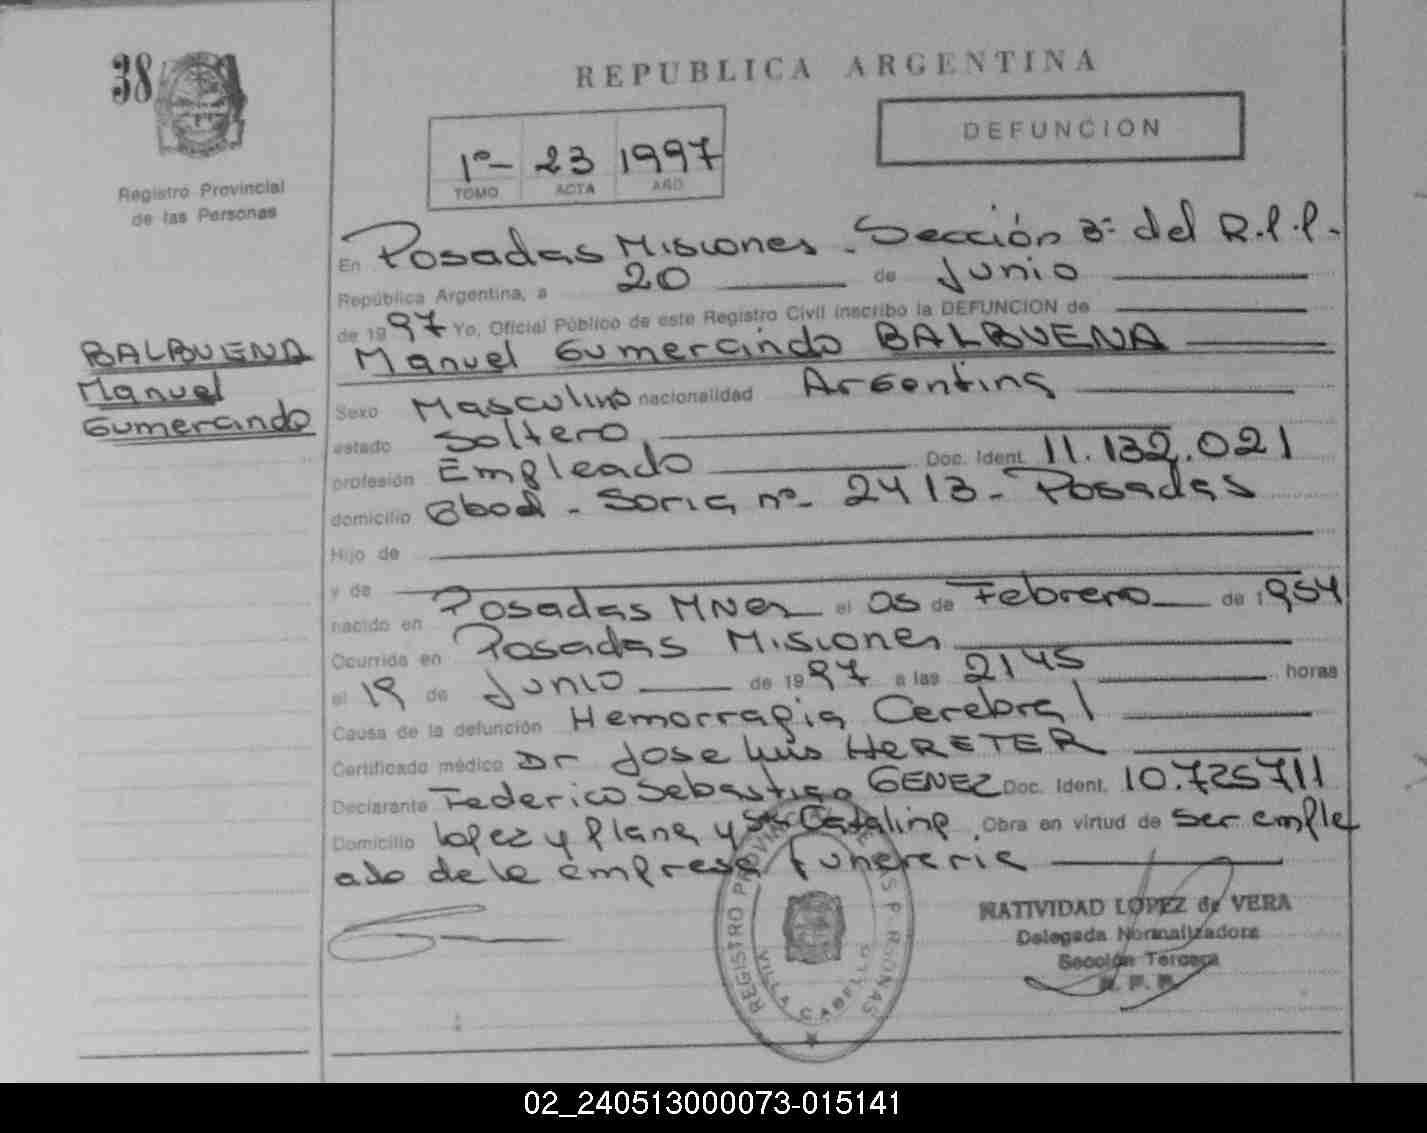 38
Registro Provincial
de las Personas
BALBUENA
Manuel
Gumercindo
REPUBLICA ARGENTINA
1º- 23 1997
TOMO ACTA AÑO
DEFUNCION
En Posadas Misiones - Sección 3ª del R.P.P.-
República Argentina, a 20 de Junio
de 1997 Yo, Oficial Público de este Registro Civil inscribo la DEFUNCION de
Manuel Gumercindo BALBUENA
Sexo Masculino nacionalidad Argentina
estado Soltero
profesión Empleado Doc. Ident. 11.132.021
domicilio Soria nº- 2413 - Posadas
Hijo de
y de
nacido en Posadas MNes el 05 de Febrero de 1954
Ocurrida en Posadas Misiones
el 19 de Junio de 1997 a las 2145 horas
Causa de la defunción Hemorragia Cerebral
Certificado médico Dr Jose Luis HERETER
Declarante Federico Sebastian GENEZ Doc. Ident. 10.725711
Domicilio Lopez y Plane y Sta Catalina Obra en virtud de ser emple
ado de la empresa funeraria
REGISTRO PROVINCIAL DE LAS PERSONAS
VILLA CABELLO
NATIVIDAD LOPEZ de VERA
Delegada Normalizadora
Sección Tercera
R. P. P.
02_240513000073-015141